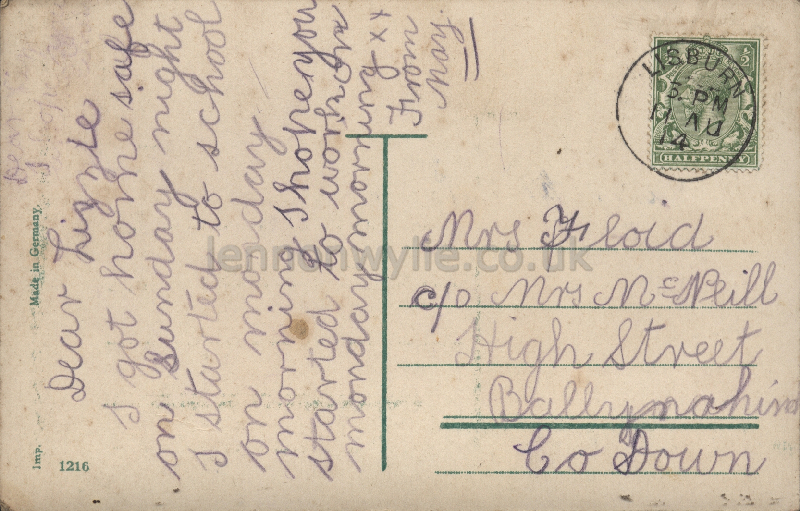 Dear Lizzie
I got home safe
on Sunday night
I started to school
on monday
morning I hope you
started to work on
monday morning xx
From
May
LISBURN
5. PM
11 AU
14
1/2
HALFPENNY
Mrs Floid
c/o Mrs McNeill
High Street
Ballynahinc
Co Down
Made in Germany.
Imp.
1216
lennonwylie.co.uk